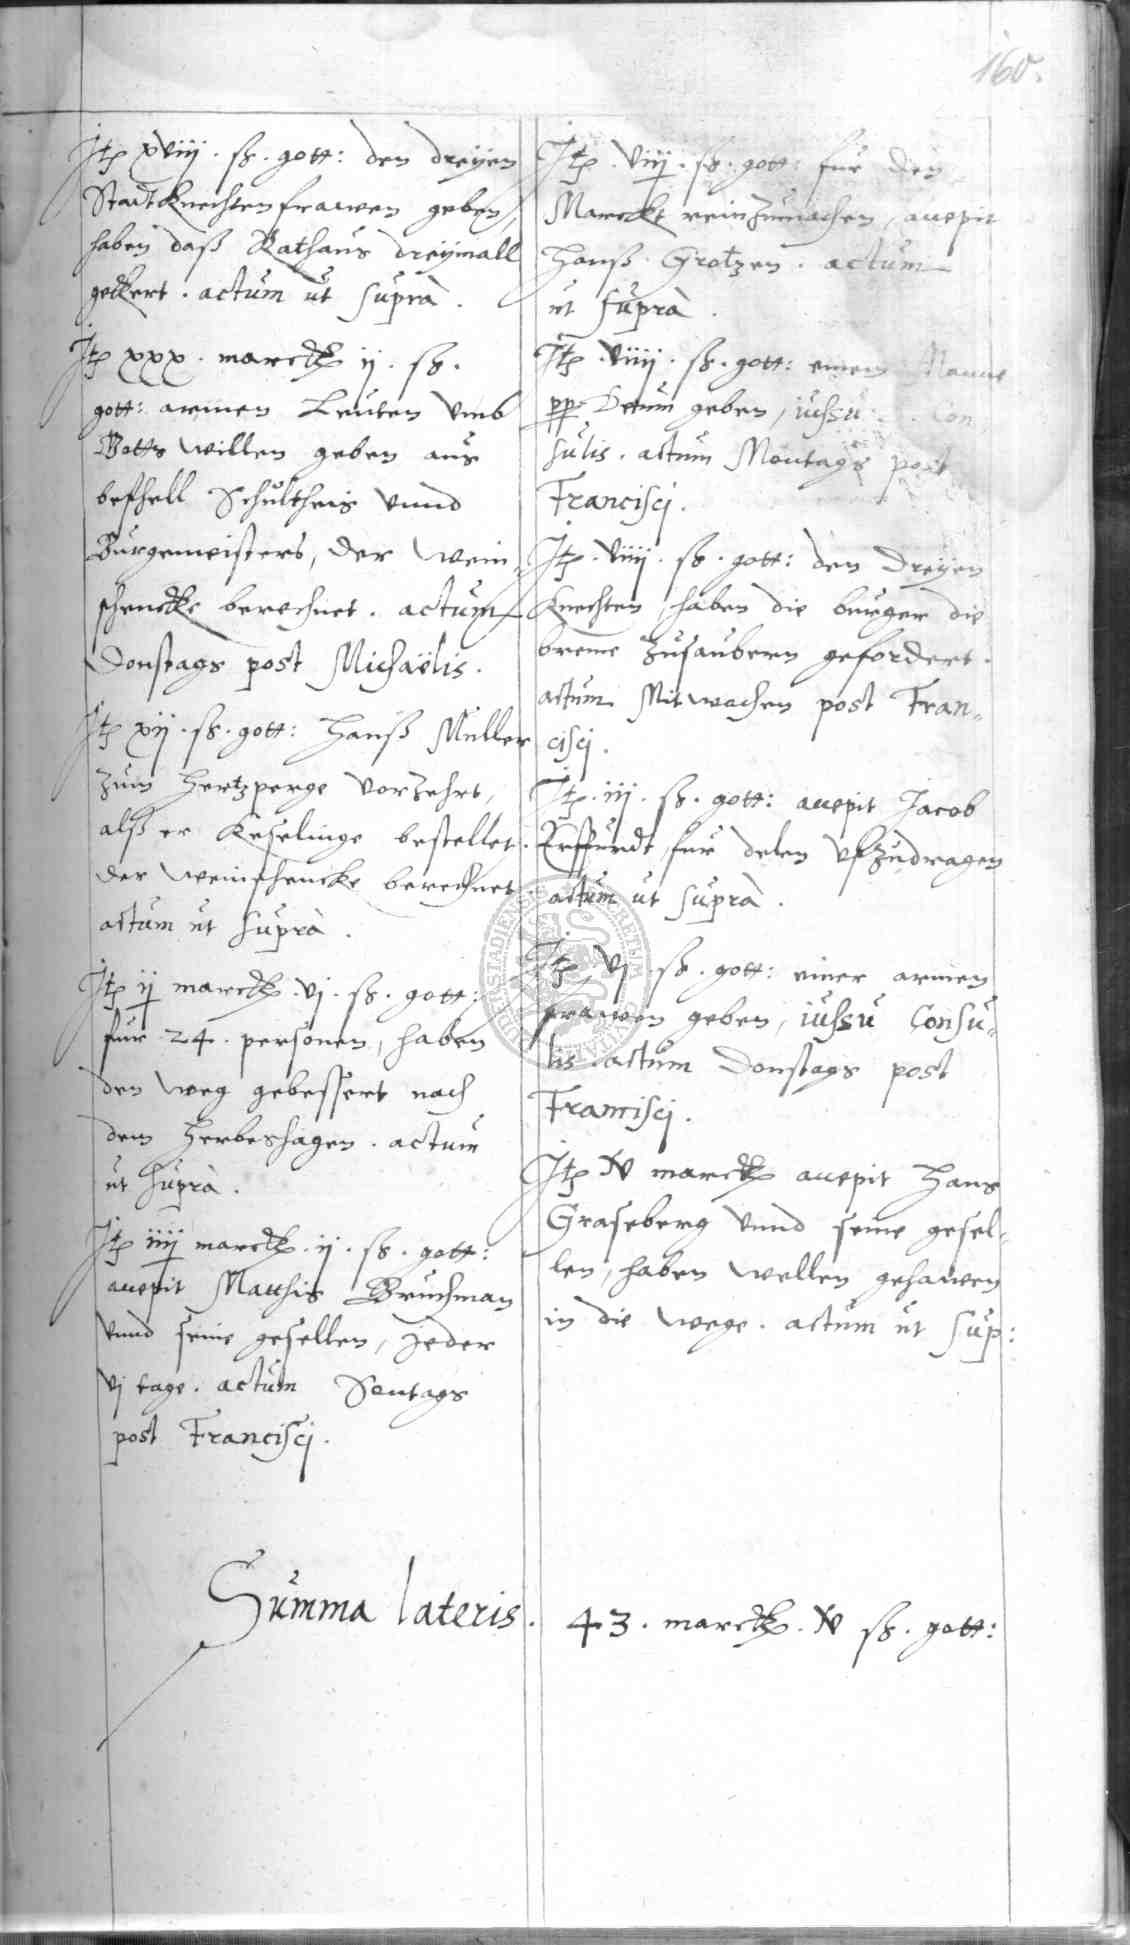 160.
Jtem xviij . ß . gott: den dreyen
Stadtknechtenfrawen geben,
haben daß Rathaus dreymall
gekert . actum ut suprà .
Jtem xxx . marck ij . ß .
gott: armen Leuten vmb
Gotts willen geben aus
befhell Schultheis vnnd
Burgemeisters, der wein-
schencke berechnet . actum
Donstags post Michaëlis .
Jtem xij . ß . gott: Hanß Muller
zum Hertzperge vorzehrt,
alß er Keselinge bestellet .
der weinschencke berechnet .
actum ut suprà .
Jtem ij marck . vj . ß . gott:
fur 24 . personen, haben
den weg gebessert nach
dem Herbeshagen . actum
ut suprà .
Jtem iiij marck . ij . ß . gott:
accepit Matthis Bruchman
vnnd seine gesellen, Jeder
vj tage . actum Sontags
post Francisci .
Jtem . viij . ß . gott: fur den
Marckt reinzumachen, accepit
Hanß Grotzen . actum
ut suprà .
Jtem . viiij . ß . gott: einem Manne
pp: Deum geben, iussu Con
sulis . actum Montags post
Francisci .
Jtem . viiij . ß . gott: den dreyen
Knechten, haben die burger die
breme zusaubern gefordert .
actum Mitwochen post Fran-
cisci .
Jtem . iij . ß . gott: accepit Jacob
Erffurdt, fur delen vfzudragen
actum ut suprà .
Jtem vj . ß . gott: einer armen
frawen geben, iussu Consu-
lis . actum Donstags post
Francisci .
Jtem N marck accepit Hans
Graseberg vnnd seine gesel-
len, haben wellen gehawen
in die wege . actum ut sup:
Summa lateris . 43 . marck . N ß . gott: